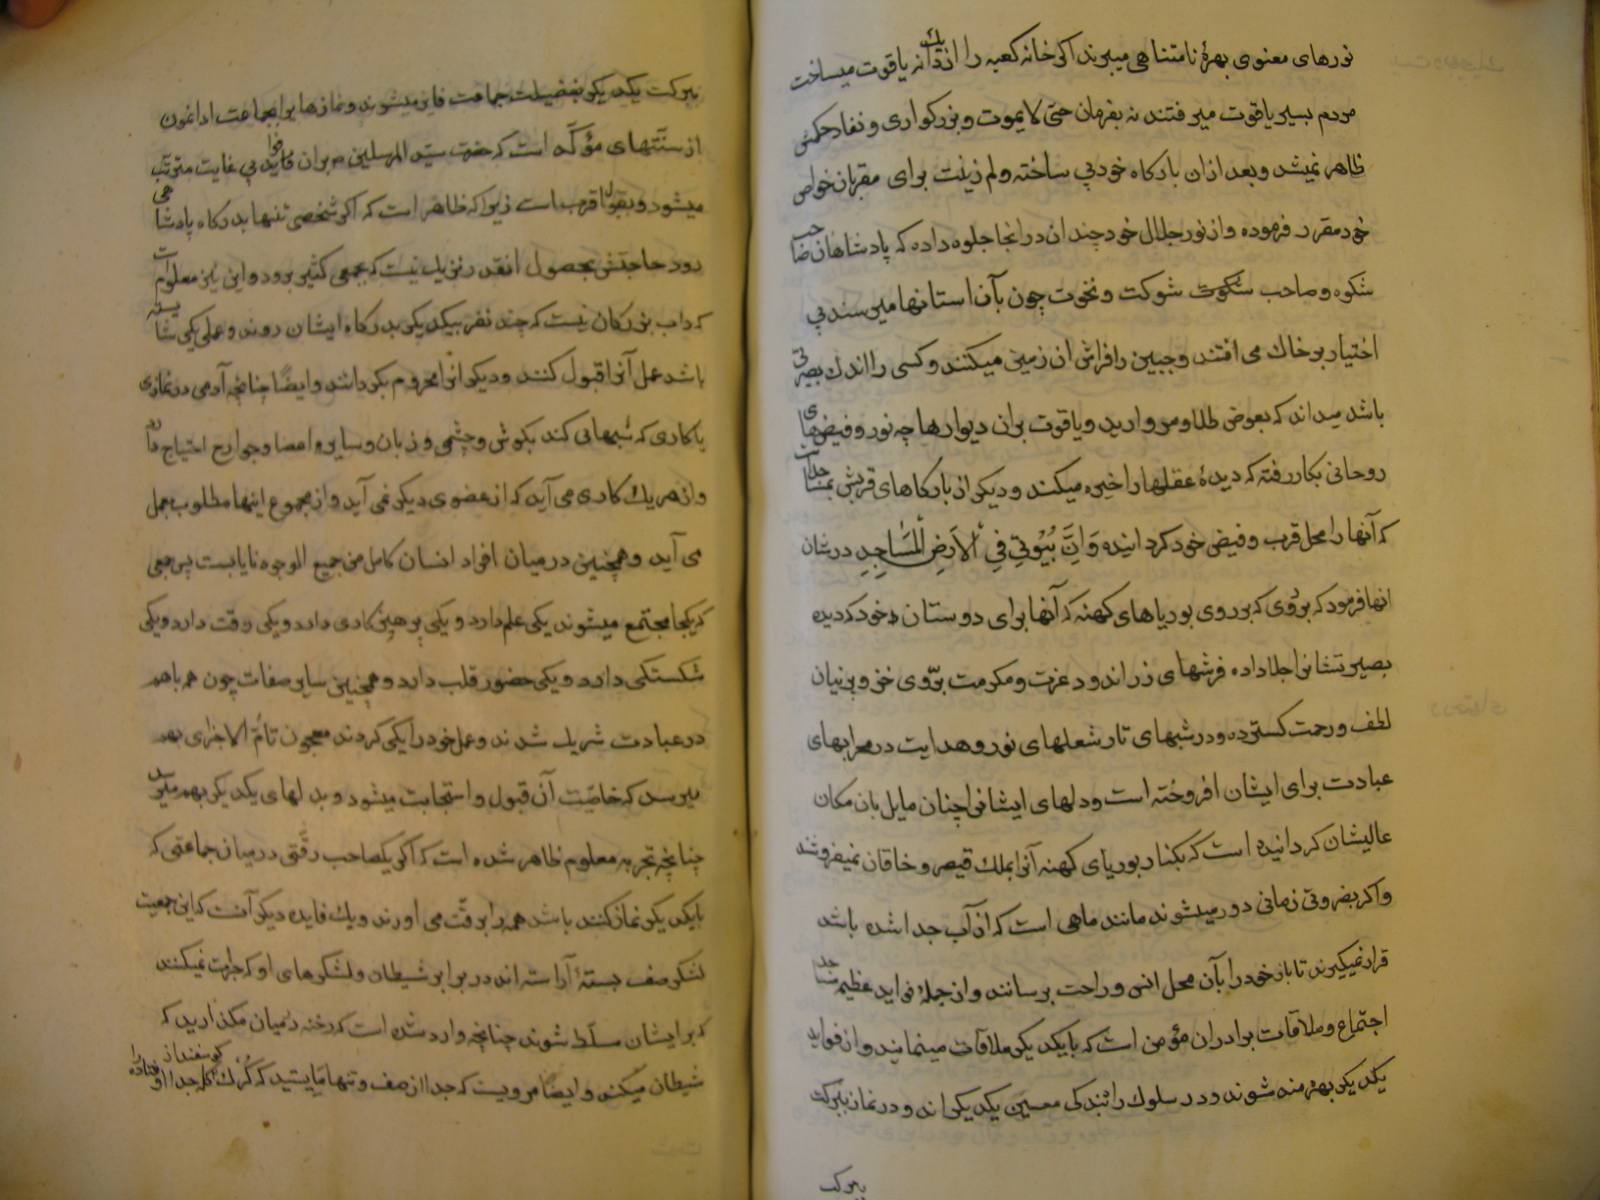 نورهای معنوی بهرهٔ نامتناهی میبرند اکر خانه کعبه را از یک دانه یاقوت میساخت
مردم بسیر یاقوت میرفتند نه بفرمان حی لا یموت و بزرکواری و نفاد حکمش
ظاهر نمیشد و بعد ازان بارکاه خود بی ساخته ولم زینت برای مقربان خواص
خود مقرر فرموده و از نور جلال خود چندان در انجا جلوه داده که پادشاهان صاحب
شکوه و صاحب شکوت شوکت و نخوت چون بآن استانها میرسند بی
اختیار بر خاک می افتند و جبین را فراش ان زمین میکنند و کسی را اندک بصیرتی
باشد میداند که بعوض طلا و مروارید و یاقوت بران دیوارها چه نور و فیض های
روحانی بکار رفته که دیدهٔ عقلها را خیره میکند و دیکر از بارکاهای قربش مساجد است
که آنها را محل قرب و فیض خود کردانیده وَاِنَّ بُیُوتِی فِی اْلاَرضِ اَلْمَسَاجِدِ در شان
انها فرمود که بر روی بوریاهای کهنه که آنها برای دوستان خود کردیده
بصیرتشانرا جلا داده فرشهای زر اندود عزت و مکرمت بر روی خز و پرنیان
لطف و رحمت کسترده و در شبهای تار شعلهای نور و هدایت در محرابهای
عبادت برای ایشان افروخته است و دلهای ایشانرا چنان مایل بان مکان
عالیشان کردانیده است که بکنار بوریای کهنه آنرا بملک قیصر و خاقان نمیفروشند
و اکر بضروتی زمانی دور میشوند مانند ماهی است که از آب جدا شده باشد
قرار نمیکیرند تا باز خود را بآن محل انس و راحت برسانند و از جملهٔ فواید عظیمه مساجد
اجتماع و ملاقات برادران مؤمن است که با یکدیکر ملاقات مینمایند و از فواید
یکدیکر بهره مند شوند و در سلوک راه بندکی معین یکدیکر اند و در نماز ببرکت
ببرکت
ببرکت یکدیکر بفضیلت جماعت فایز میشوند و نمازها را بجماعت ادا نمون
از سنّتهای مؤکّده است که حضرت سیّد المرسلین بران فواید بی غایت مترتب
میشود و بقبول اقرب است زیرا که ظاهر است که اکر شخصی تنها بدرکاه پادشاهی
رود حاجتش بحصول انقدر نزیک نیست که جمعی کثیر برود و این نیز معلوم است
که داب بزرکان نیست که چند نفر بیکدیکر بدرکاه ایشان روند و عمل یکی شایسته
باشد عمل آنرا قبول کنند و دیکرانرا محروم بکردانند و ایضًا چنانچه آدمی در نمازی
یا کاری که تنهائی کند بکوش و چشم و زبان و سایر اعضا و جوارح احتیاج دارد
و از هر یک کاری می آید که از عضوی دیکر نمی آید و از مجموع اینها مطلوب بعمل
می آید و همچنین درمیان افراد انسان کامل من جمیع الوجوه نایابست پس جمعی
که یکجا مجتمع میشوند یکی علم دارد و یکی پرهیزکاری دارد و یکی رقت دارد و یکی
شکستکی دارد و یکی حضور قلب دارد و همچنین سایر صفات چون هم باهم
در عبادت شریک شدند و عمل خود را یکی کردند معجون تامّ الاجزای بهم
میرسد که خاصّیت آن قبول و استجابت میشود و بدلهای یکدیکر بهم میرسد
چنانچه بتجربه معلوم ظاهر شده است که اکر یکصاحب رقّتی درمیان جماعتی که
بایکدیکر نماز کنند باشد همه را برقّت می اورند و یک فایده دیکر آنست که این جمعیت
لشکر صف بستهٔ آراسته اند در برابر شیطان و لشکرهای او که جرات نمیکنند
که بر ایشان مسلّط شوند چنانچه وارد شده است که رخنه درمیان مکذارید که
شیطان میکند و ایضًا مرویست که جدا از صف و تنها مایستید که کُرک کوسفند از کله جدا افتاده را